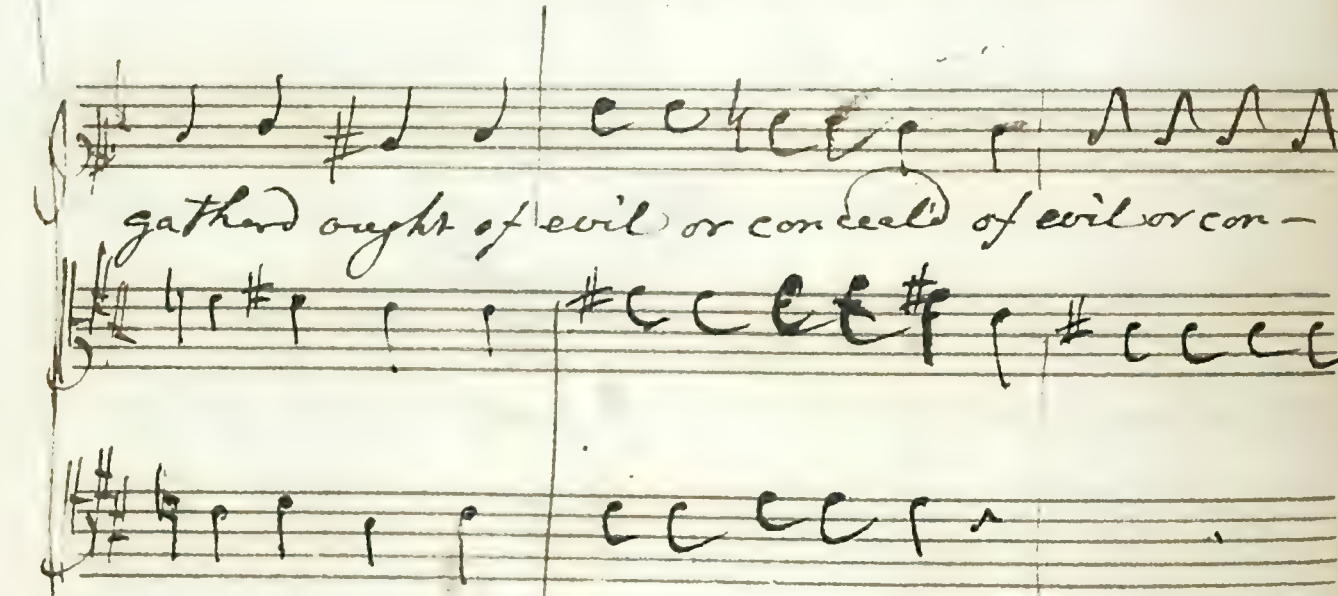 gatherd ought of evil or conceal'd of evil or con-